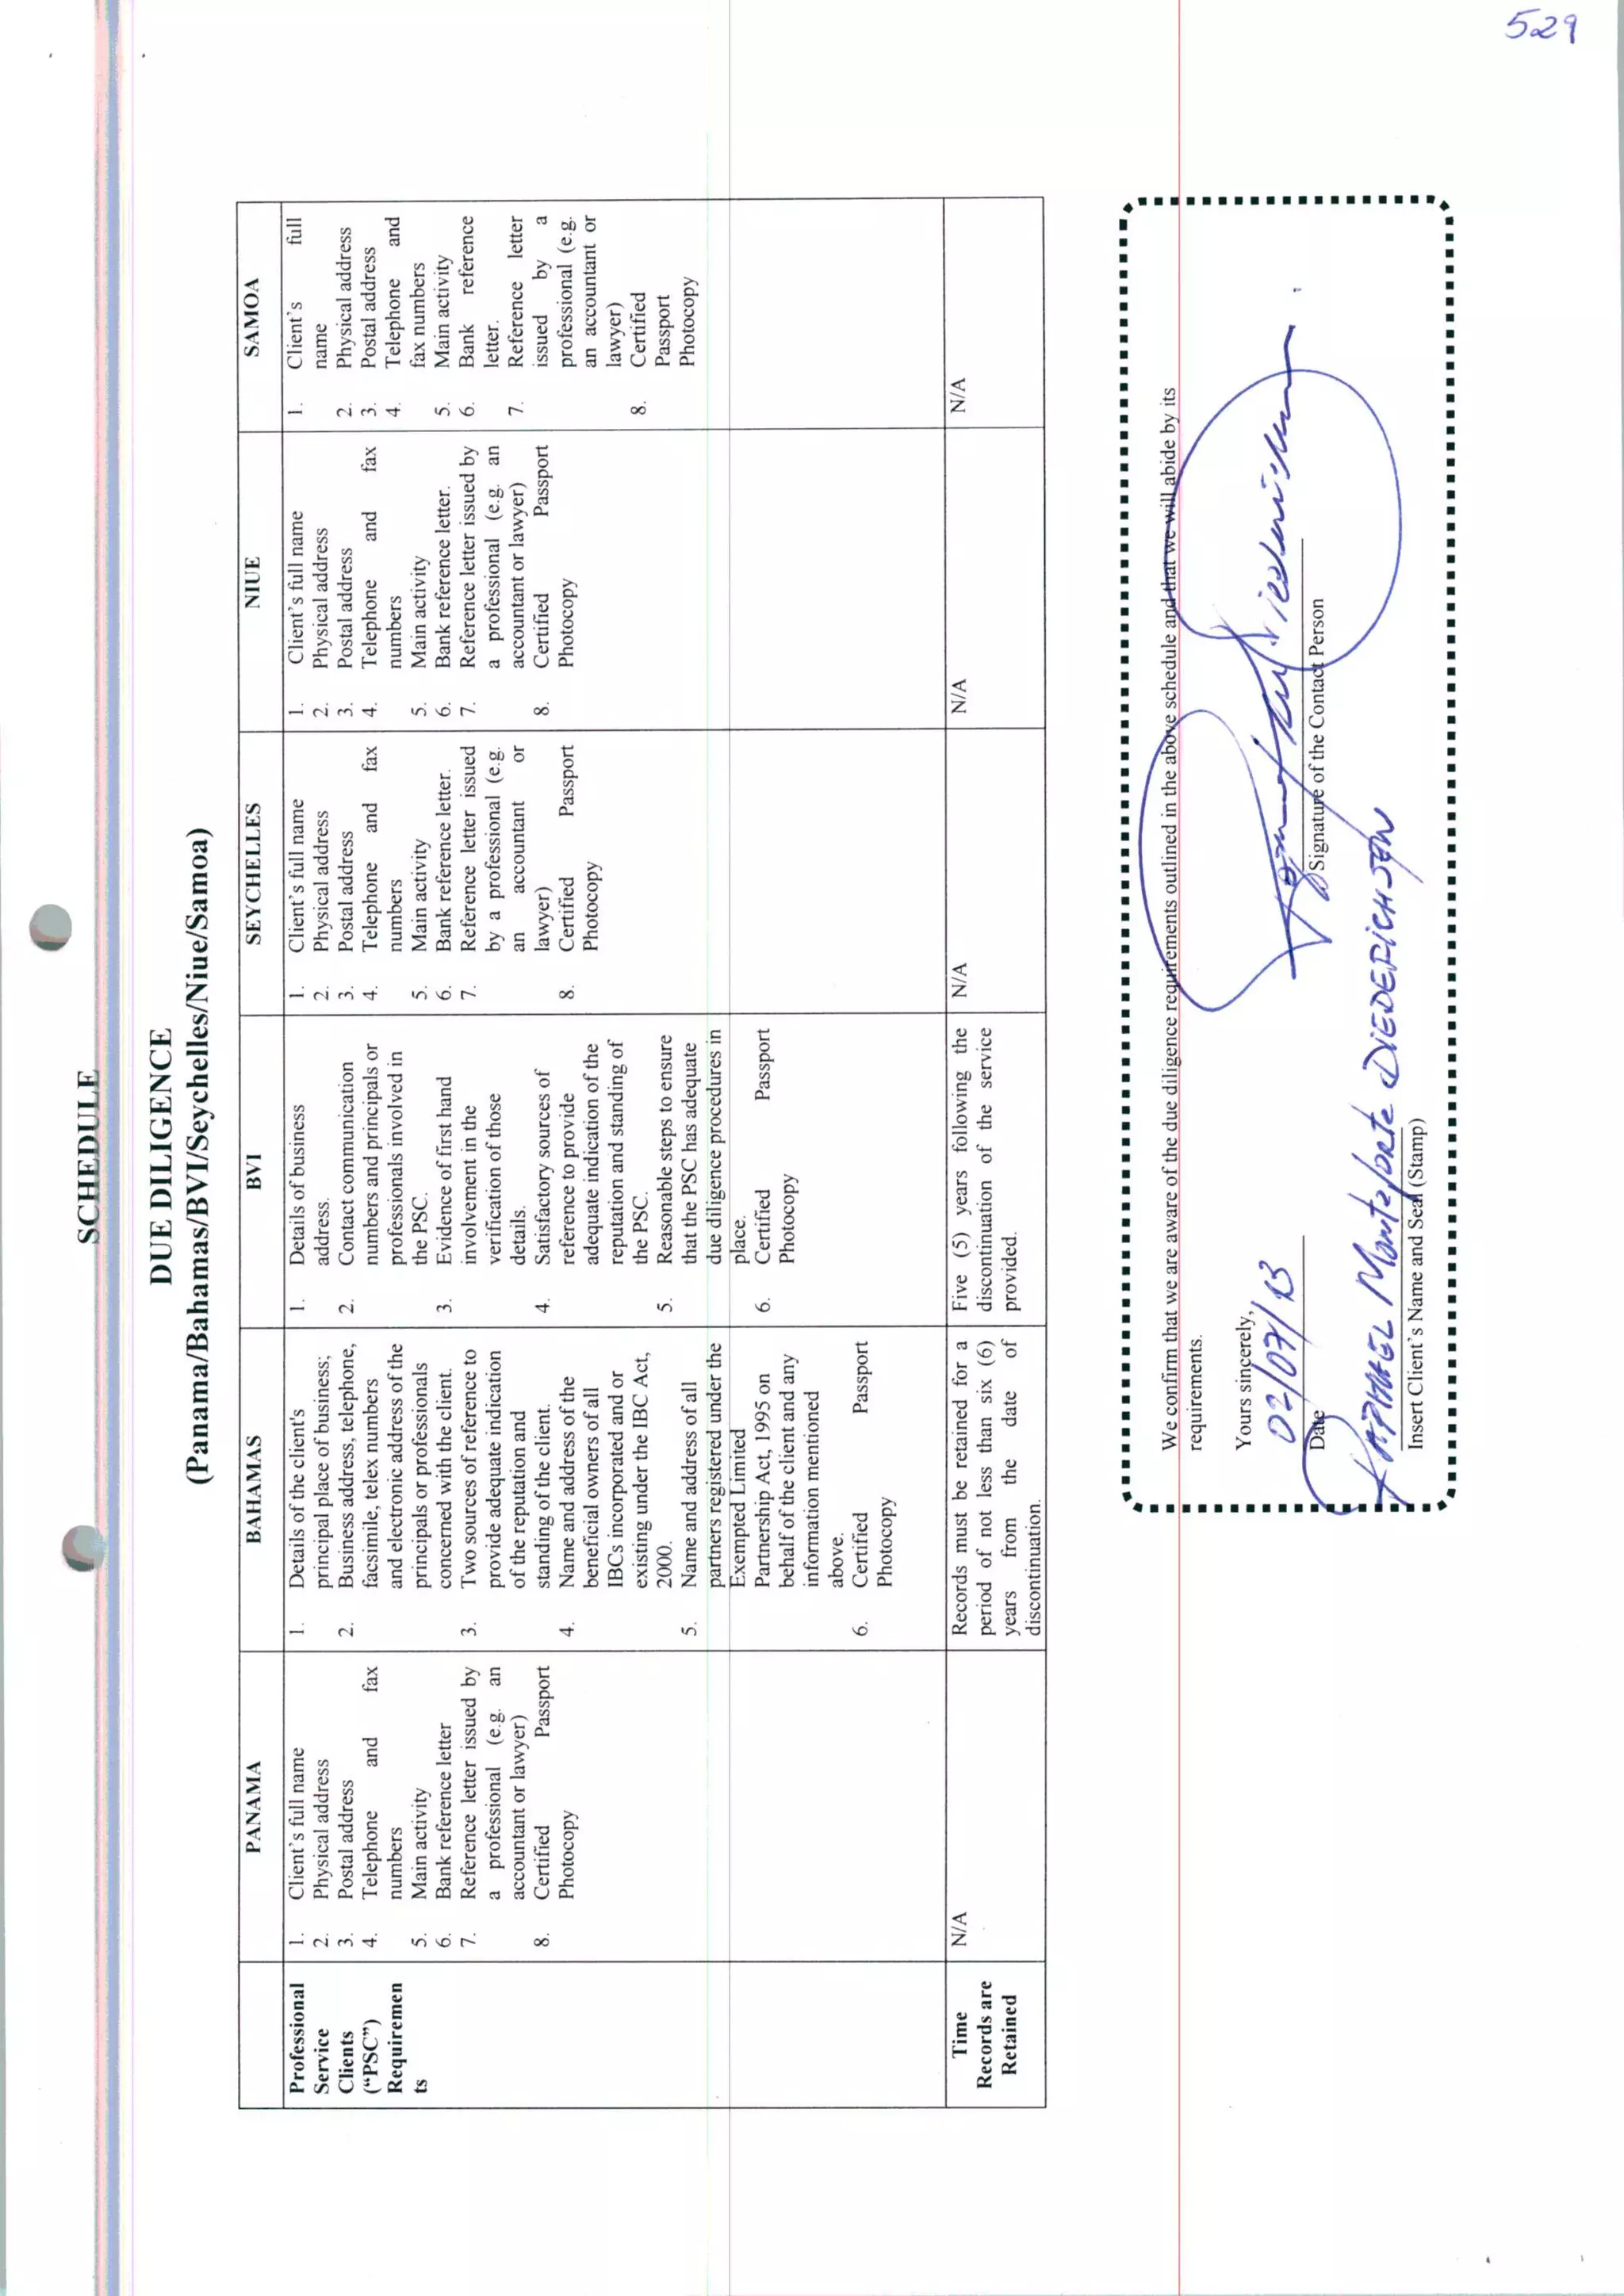 529
SCHEDULE
DUE DILIGENCE
(Panama/Bahamas/BVI/Seychelles/Niue/Samoa)
PANAMA
BAHAMAS
BVI
SEYCHELLES
NIUE
SAMOA
Professional
Service
Clients
("PSC")
Requiremen
ts
1. Client's full name
2. Physical address
3. Postal address
4. Telephone and fax
numbers
5. Main activity
6. Bank reference letter
7. Reference letter issued by
a professional (e.g. an
accountant or lawyer)
8. Certified Passport
Photocopy
1. Details of the client's
principal place of business;
2. Business address, telephone,
facsimile, telex numbers
and electronic address of the
principals or professionals
concerned with the client.
3. Two sources of reference to
provide adequate indication
of the reputation and
standing of the client.
4. Name and address of the
beneficial owners of all
IBCs incorporated and or
existing under the IBC Act,
2000.
5. Name and address of all
partners registered under the
Exempted Limited
Partnership Act, 1995 on
behalf of the client and any
information mentioned
above.
6. Certified Passport
Photocopy
1. Details of business
address.
2. Contact communication
numbers and principals or
professionals involved in
the PSC.
3. Evidence of first hand
involvement in the
verification of those
details.
4. Satisfactory sources of
reference to provide
adequate indication of the
reputation and standing of
the PSC.
5. Reasonable steps to ensure
that the PSC has adequate
due diligence procedures in
place.
6. Certified Passport
Photocopy
1. Client's full name
2. Physical address
3. Postal address
4. Telephone and fax
numbers
5. Main activity
6. Bank reference letter.
7. Reference letter issued
by a professional (e.g.
an accountant or
lawyer)
8. Certified Passport
Photocopy
1. Client's full name
2. Physical address
3. Postal address
4. Telephone and fax
numbers
5. Main activity
6. Bank reference letter.
7. Reference letter issued by
a professional (e.g. an
accountant or lawyer)
8. Certified Passport
Photocopy
1. Client's full
name
2. Physical address
3. Postal address
4. Telephone and
fax numbers
5. Main activity
6. Bank reference
letter.
7. Reference letter
issued by a
professional (e.g.
an accountant or
lawyer)
8. Certified
Passport
Photocopy
Time
Records are
Retained
N/A
Records must be retained for a
period of not less than six (6)
years from the date of
discontinuation.
Five (5) years following the
discontinuation of the service
provided.
N/A
N/A
N/A
We confirm that we are aware of the due diligence requirements outlined in the above schedule and that we will abide by its
requirements.
Yours sincerely,
02/07/13
Date
Signature of the Contact Person
RAPHAEL Monteforte DIEDERICHSEN
Insert Client's Name and Seal (Stamp)